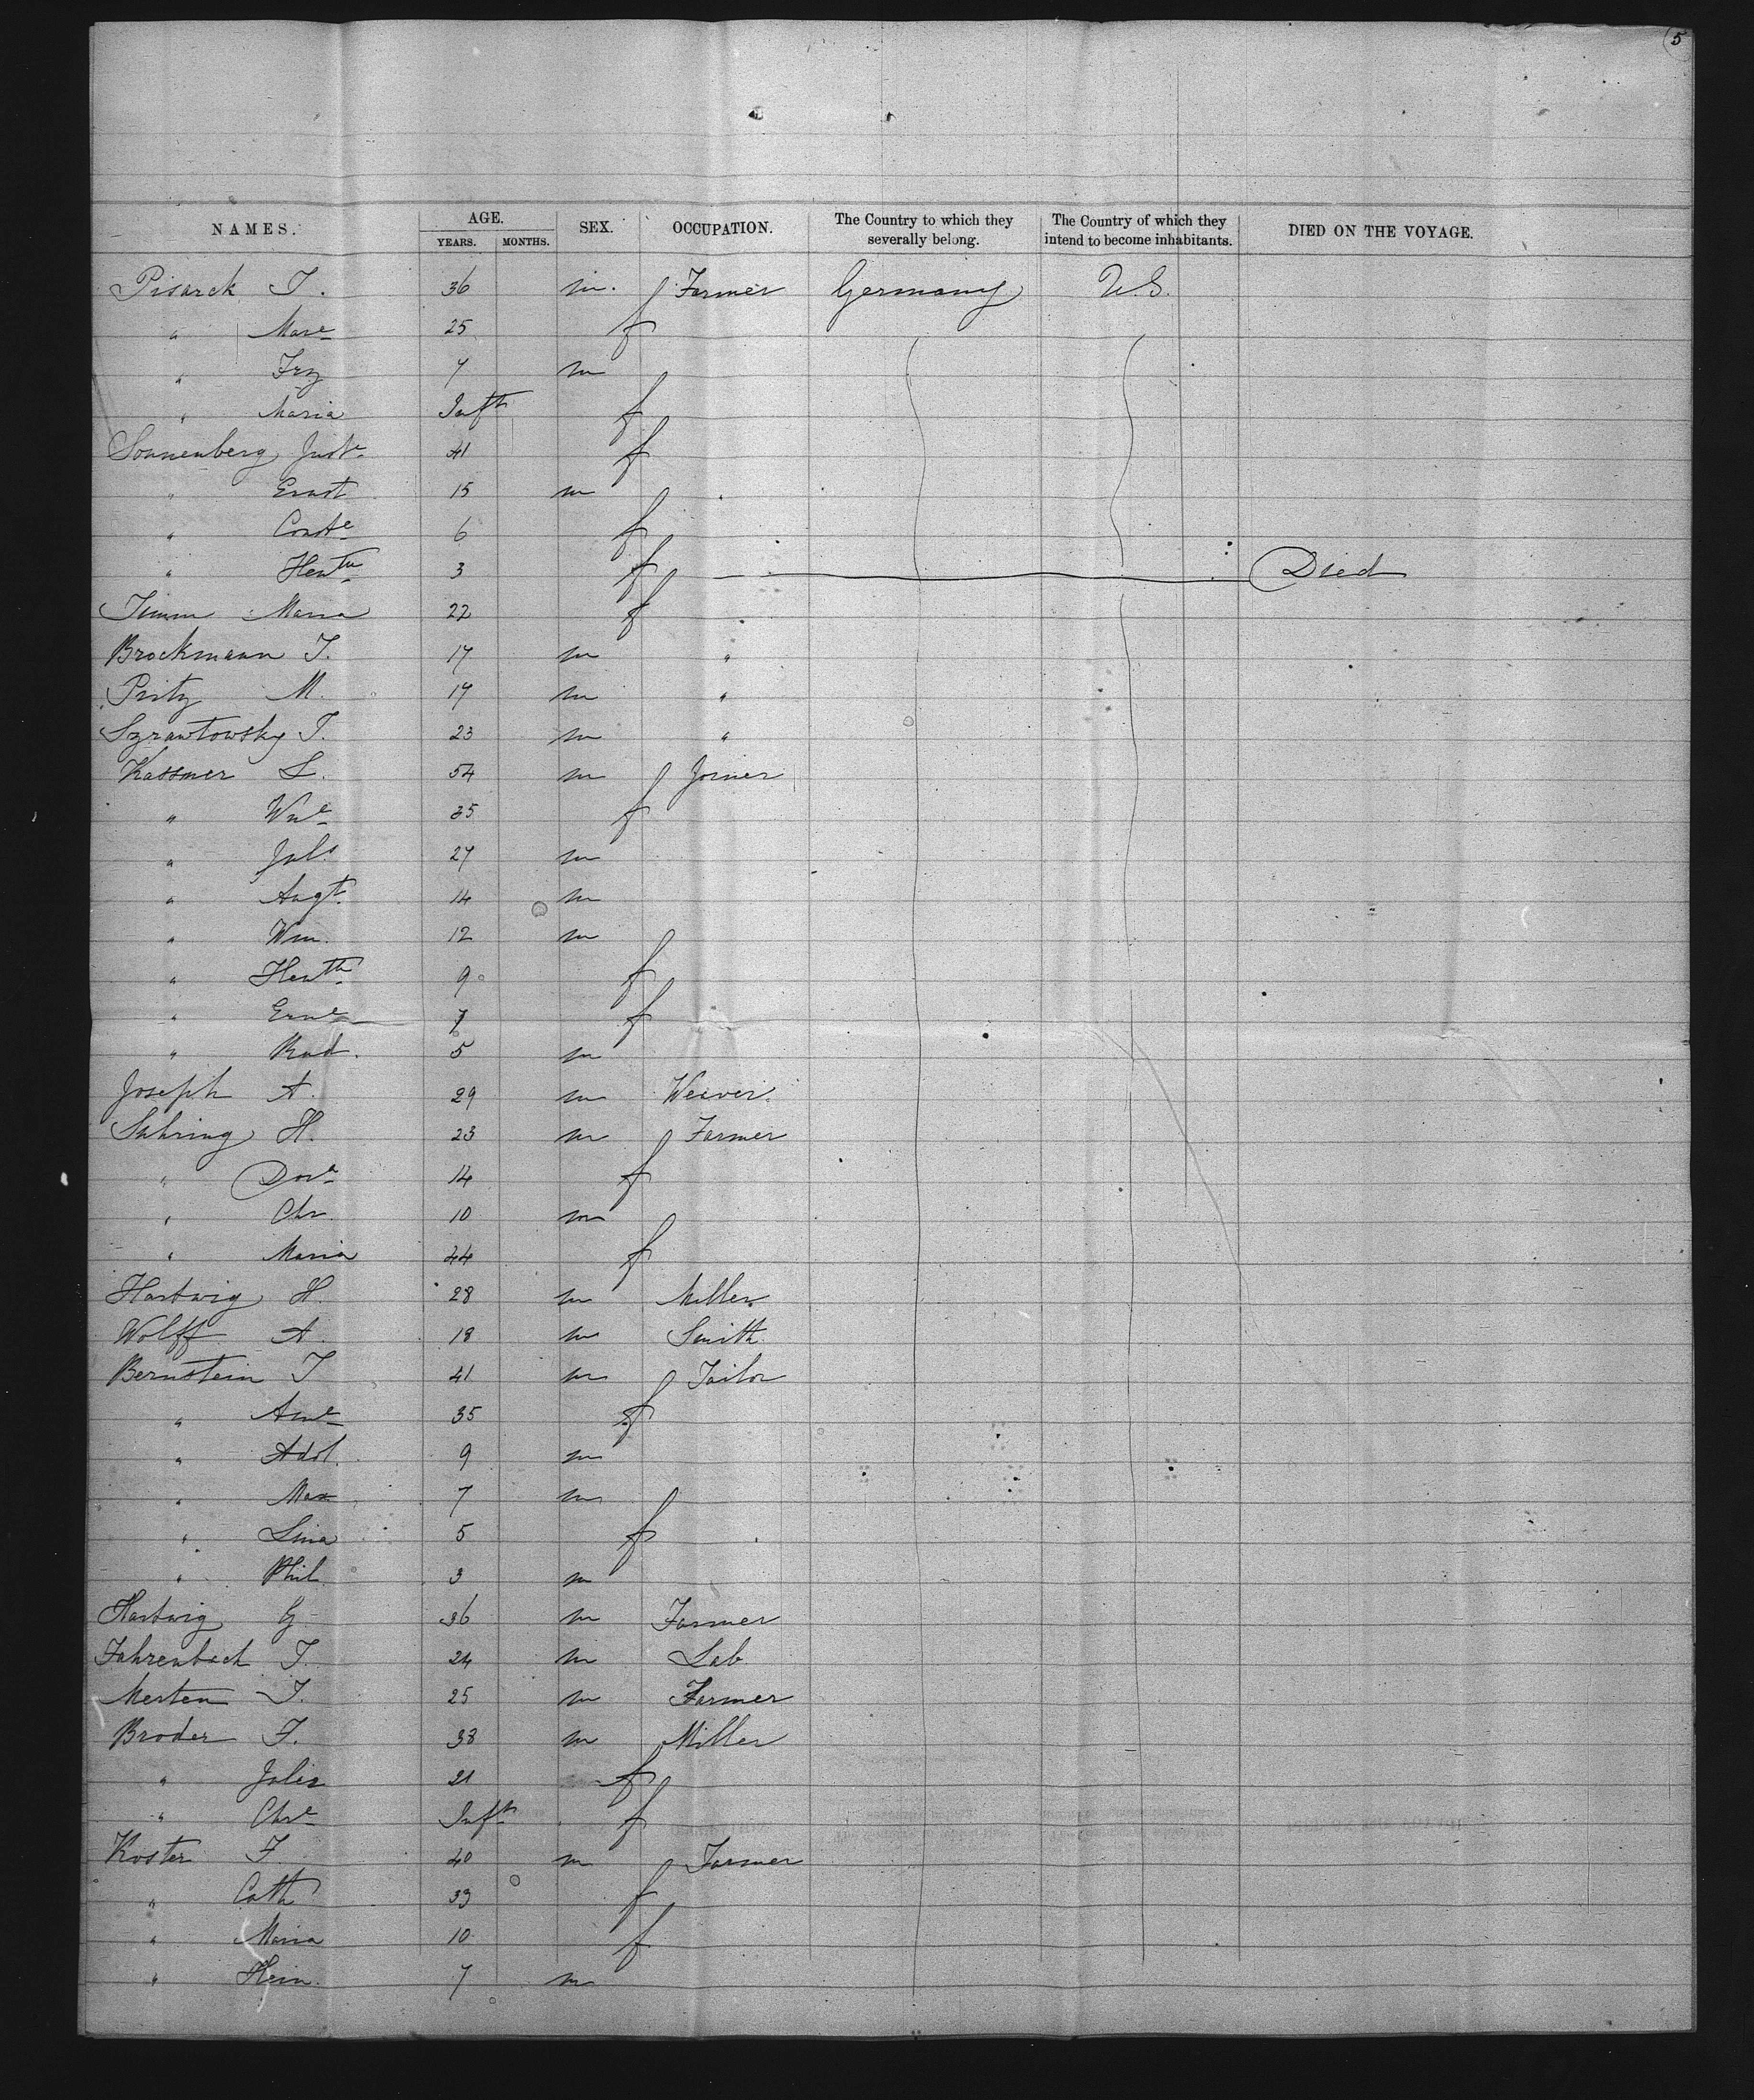 5
NAMES. AGE. YEARS. MONTHS. SEX. OCCUPATION. The Country to which they severally belong. The Country of which they intend to become inhabitants. DIED ON THE VOYAGE.
Pisarck J. 36 m. Farmer Germany U.S.
" Mare 25 f
" Frz 7 m
" Maria Inft f
Sonnenberg Juste 41 f
" Ernst 15 m
" Conste 6 f
" Hentte 3 f Died
Timm Maria 22 f
Brockmann J. 17 m "
Pritz M. 17 m "
Szrawtowsky J. 23 m "
Kassmer L. 54 m Joiner
" Wne 35 f
" Juls 27 m
" Augt 14 m
" Wm. 12 m
" Hentte 9 f
" Erne 7 f
" Rud. 5 m
Joseph A. 29 m Weaver
Suhring H. 23 m Farmer
" Dora 14 f
" Chr. 10 m
" Maria 44 f
Hartwig H. 28 m Miller
Wolff A. 18 m Smith
Bernstein J 41 m Tailor
" Ame 35 f
" Adol. 9 m
" Max 7 m
" Lina 5 f
" Phil. 3 m
Hartwig G 36 m Farmer
Fahrenbach J. 24 m Lab
Merten J. 25 m Farmer
Broder F. 38 m Miller
" Julia 21 f
" Chre Inft f
Koster F. 40 m Farmer
" Cath 33 f
" Maria 10 f
" Hein. 7 m